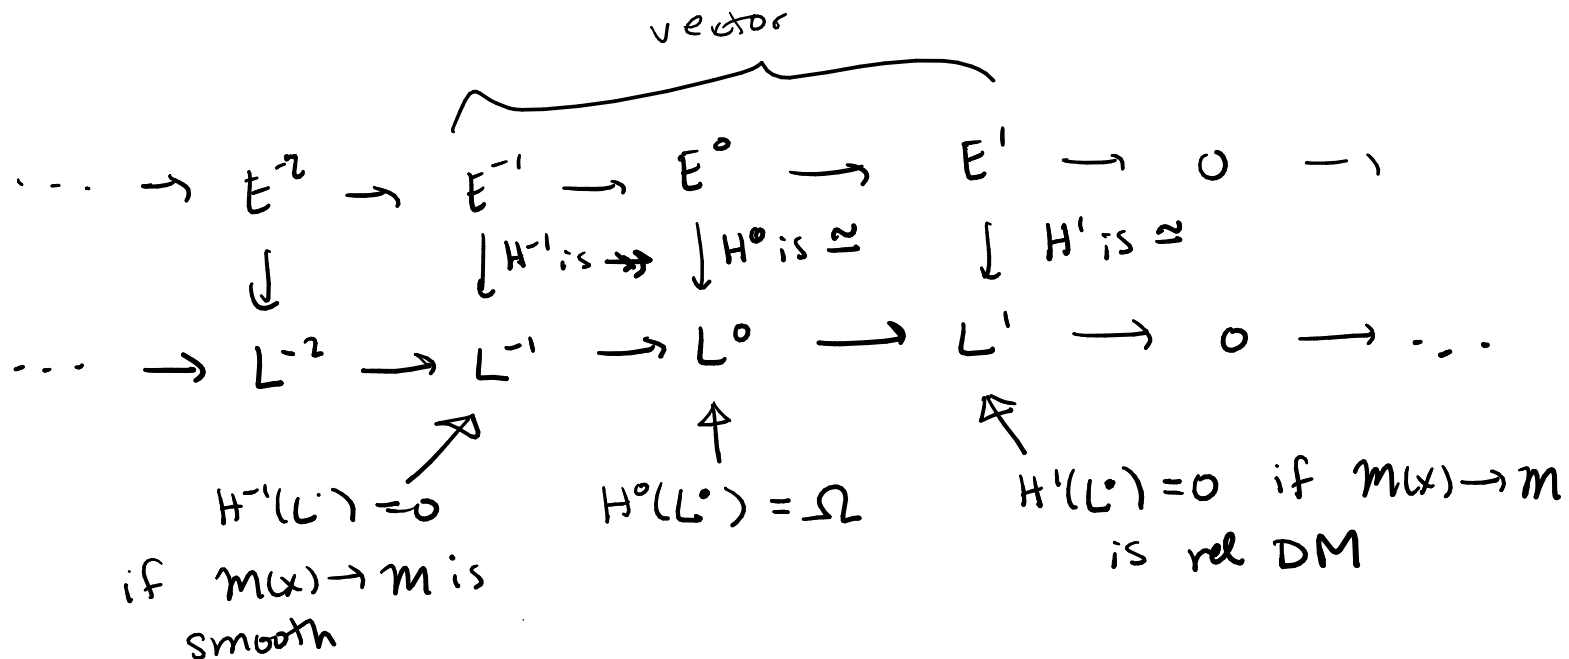 vector
... → E⁻² → E⁻¹ → E⁰ → E¹ → 0 →
↓ ↓ H⁻¹ is ↠ ↓ H⁰ is ≅ ↓ H¹ is ≅
... → L⁻² → L⁻¹ → L⁰ → L¹ → 0 → ...
H⁻¹(L˙) = 0
if m(x) → m is
smooth
H⁰(L•) = Ω
H¹(L•) = 0 if m(x) → m
is rel DM